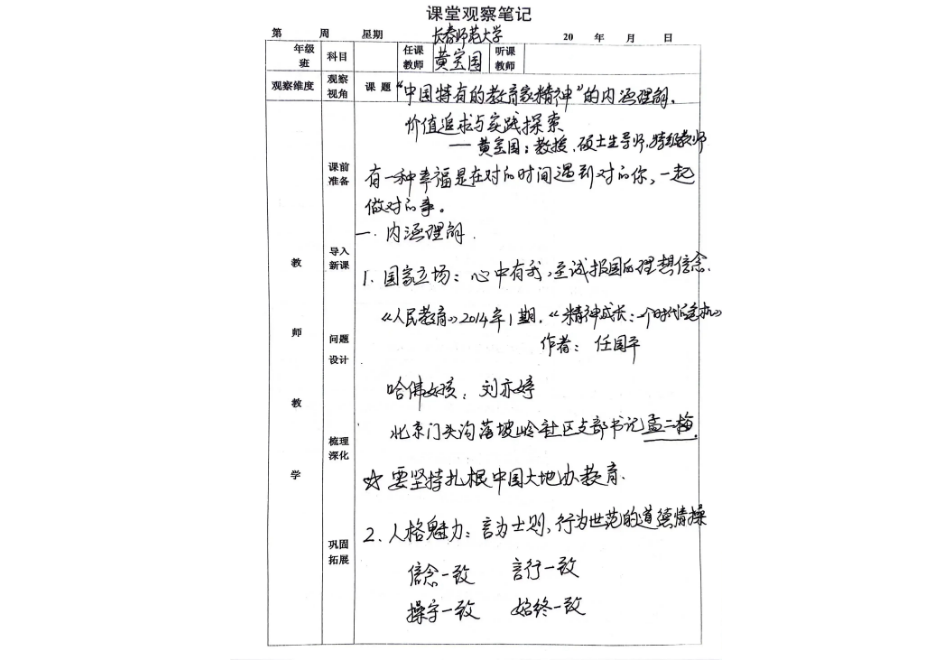 课堂观察笔记
第 周 星期 长春师范大学 20 年 月 日
年级 班 科目 任课教师 黄宝国 听课教师
观察维度 观察视角 课题 “中国特有的教育家精神”的内涵理解、
价值追求与实践探索
——黄宝国：教授、硕士生导师、特级教师
课前准备 有一种幸福是在对的时间遇到对的你，一起
做对的事。
一. 内涵理解.
导入新课
1. 国家立场：心中有我，至诚报国的理想信念.
《人民教育》2014年1期，《精神成长：一个时代的危机》
问题设计 作者：任国平
哈佛女孩：刘亦婷
北京门头沟落坡岭社区支部书记孟二梅.
梳理深化
☆要坚持扎根中国大地办教育.
2. 人格魅力：言为士则，行为世范的道德情操
巩固拓展
信念一致 言行一致
操守一致 始终一致
教师教学